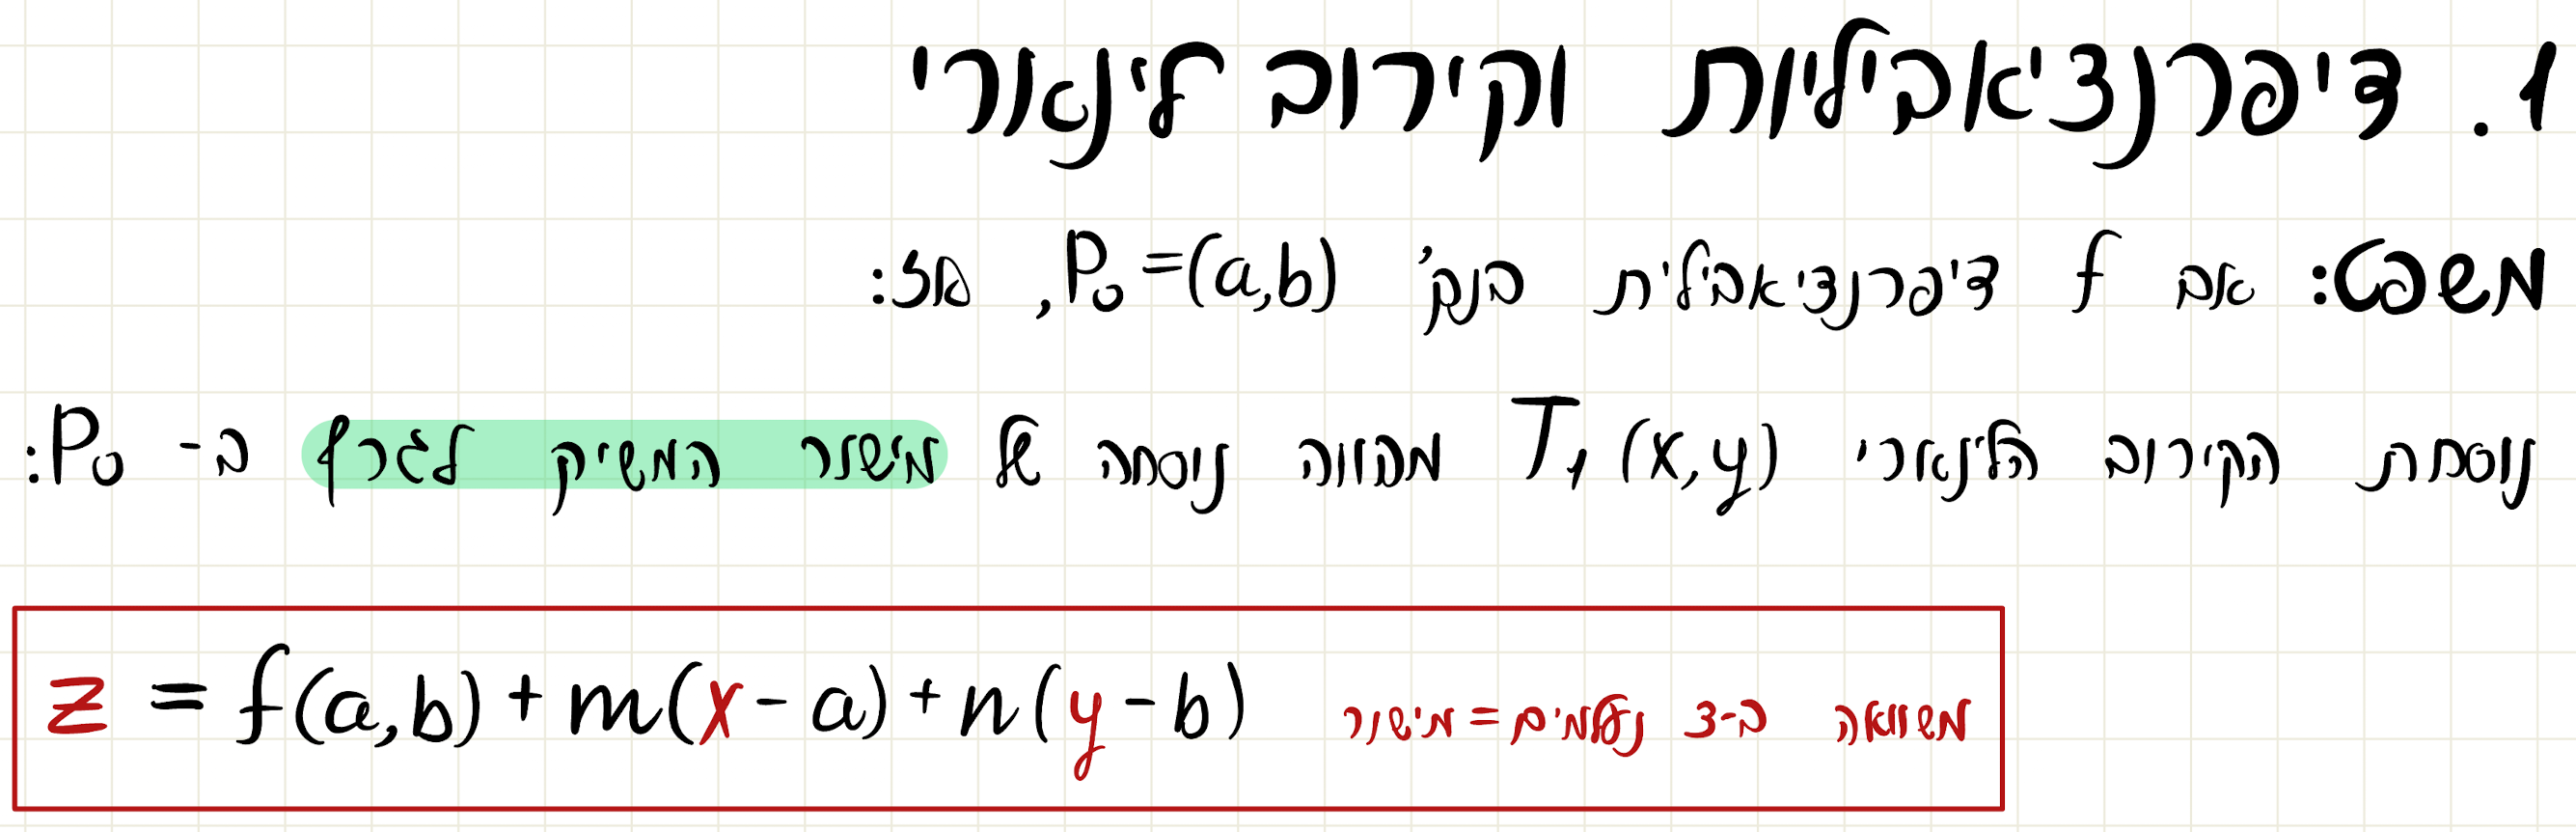 1. דיפרנציאביליות וקירוב לינארי
משפט: אם f דיפרנציאבילית בנק' P₀=(a,b), אז:
נוסחת הקירוב הלינארי T₁(x,y) מהווה נוסחה של מישור המשיק לגרף ב- P₀:
z = f(a,b) + m(x-a) + n(y-b) משוואה ב-3 נעלמים = מישור